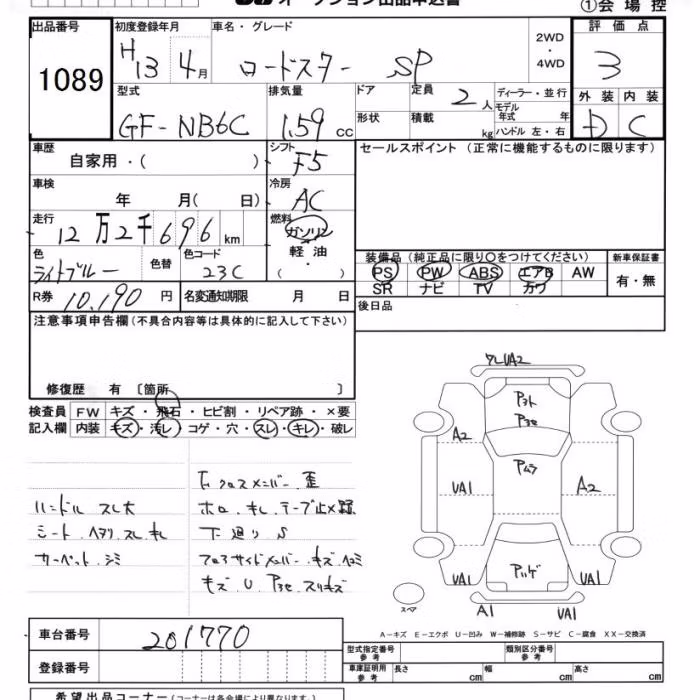 オークション出品申込書
①会場控
出品番号 1089
初度登録年月 H13 4月
車名・グレード ロードスター SP
2WD・4WD
評価点 3
型式 GF-NB6C
排気量 1.59 cc
ドア
形状
定員 2人
積載 kg
ディーラー・並行
モデル年式 年
ハンドル 左・右
外装 D
内装 C
車歴 自家用・( )
シフト F5
セールスポイント (正常に機能するものに限ります)
車検 年 月( 日)
冷房 AC
走行 12万2千696km
燃料 ガソリン 軽油 ・ ( )
色 ライトブルー
色替
色コード 23C
装備品 (純正品に限り○をつけてください)
PS PW ABS エアB AW
SR ナビ TV カワ
新車保証書 有・無
R券 10,190円
名変通知期限 月 日
後日品
注意事項申告欄 (不具合内容等は具体的に記入して下さい)
修復歴 有 〔箇所 〕
検査員記入欄
FW キズ・飛石・ヒビ割・リペア跡・×要
内装 キズ・汚レ・コゲ・穴・スレ・キレ・破レ
ハンドル スレ大
シート ヘタリ スレ キレ
カーペット シミ
F クロスメンバー 歪
ホロ キレ テープ止メ跡
下廻り S
フロアサイドメンバー キズ ヘコミ
キズ U P3セ スリキズ
ワレUA2
A2
UA1
A2
UA1
UA1
スペア
A1
UA1
A－キズ E－エクボ U－凹み W－補修跡 S－サビ C－腐食 XX－交換済
車台番号 201770
登録番号
型式指定番号 参考
類別区分番号 参考
車庫証明用 参考 長さ cm 幅 cm 高さ cm
希望出品コーナー (コーナーは各会場により異なります)